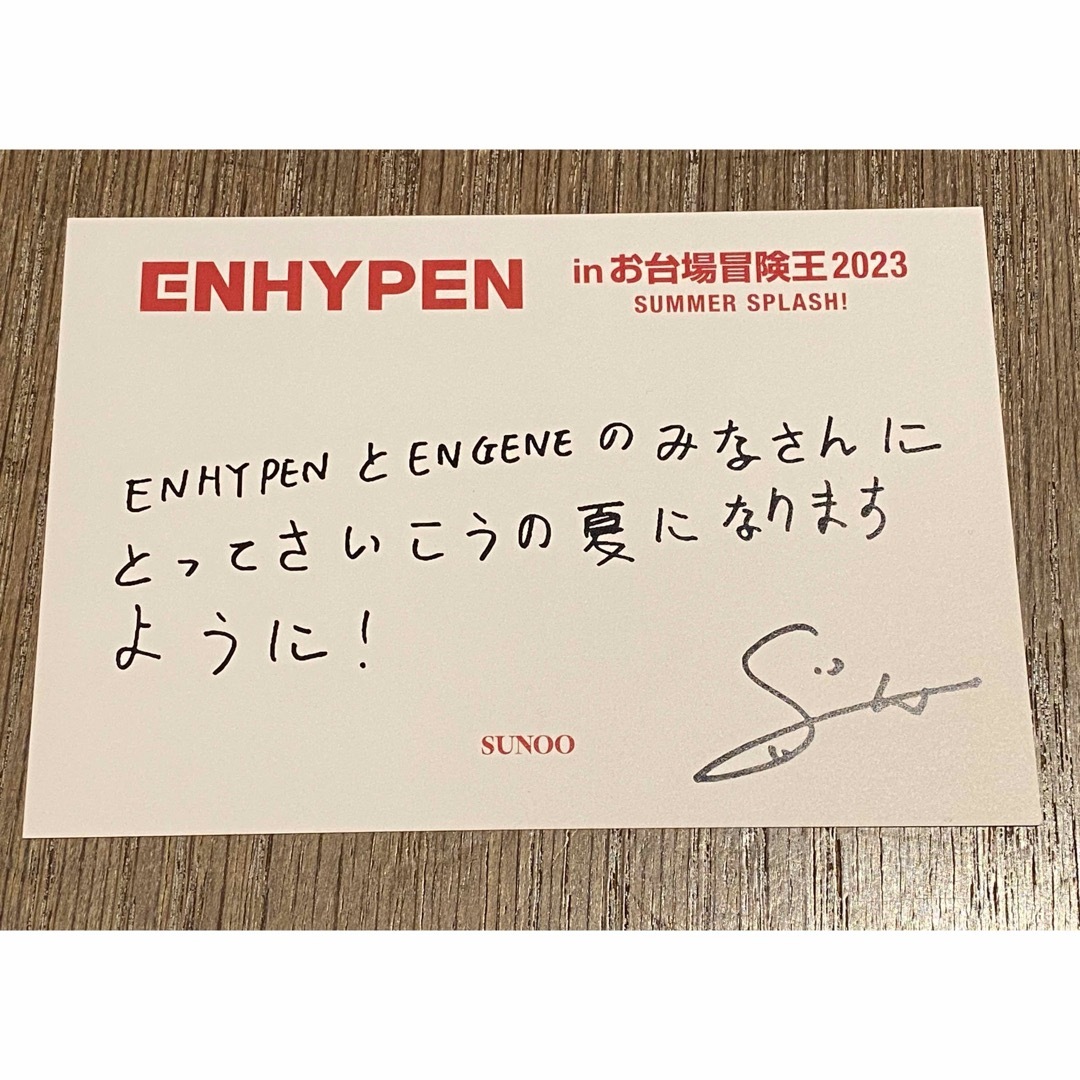 ENHYPEN in お台場冒険王2023
SUMMER SPLASH!
ENHYPENとENGENEのみなさんに
とってさいこうの夏になります
ように!
SUNOO